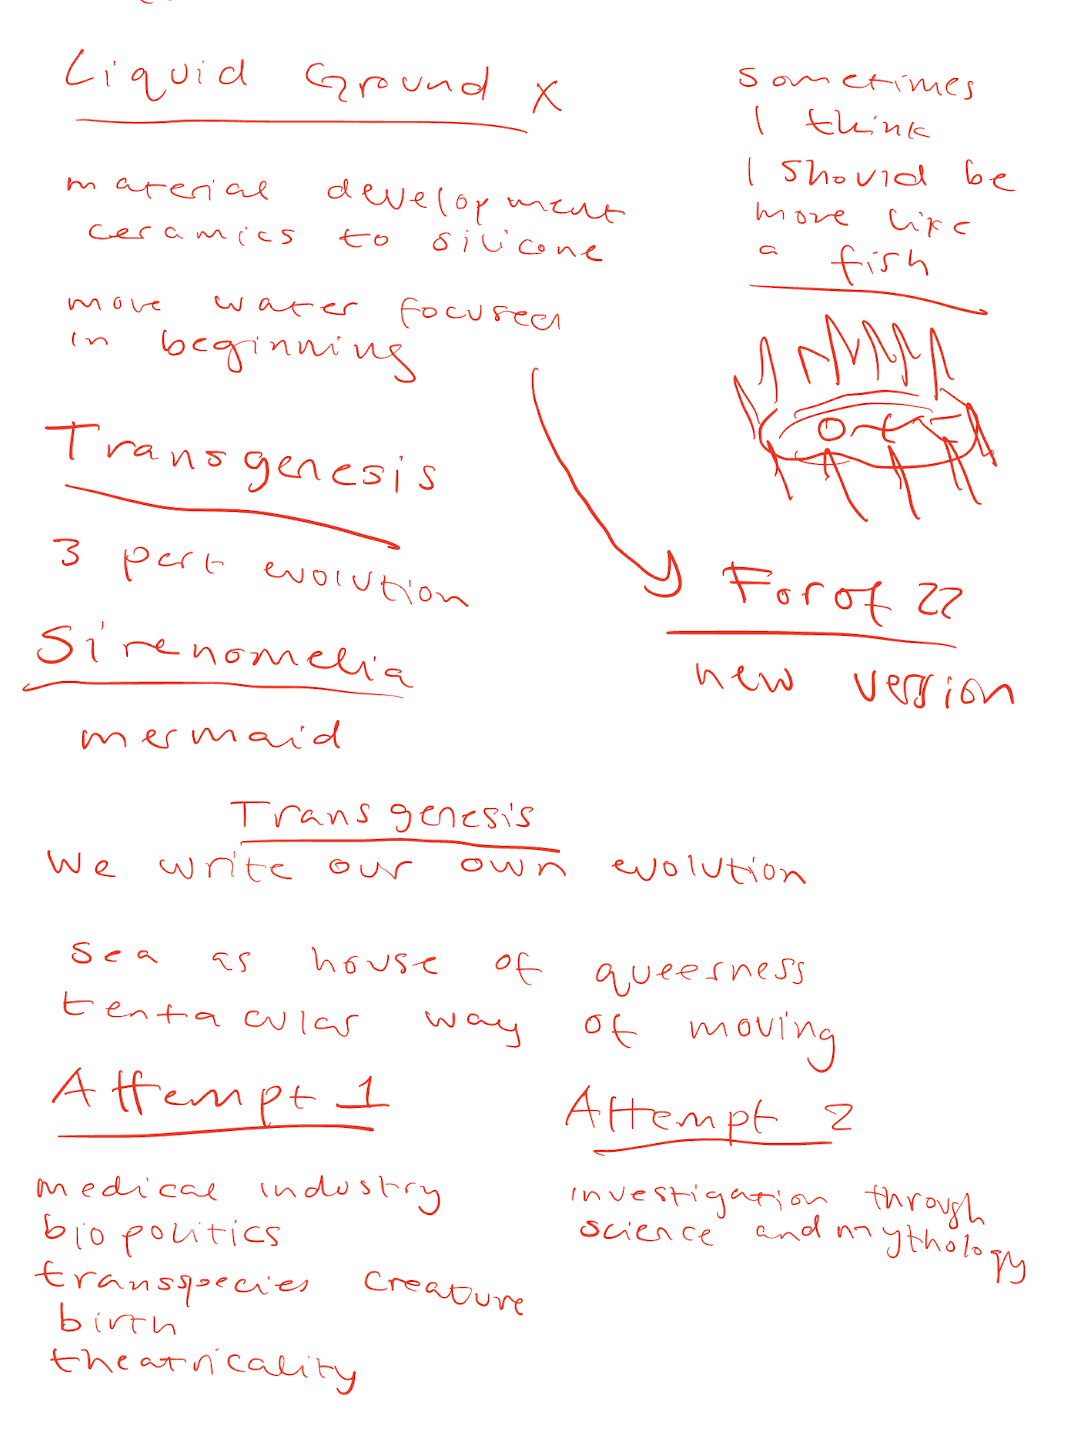 Liquid Ground x
material development
ceramics to silicone
more water focused
in beginning
sometimes
I think
I should be
more like
a fish
Transgenesis
3 part evolution
Sirenomelia
mermaid
Forof 22
new version
Transgenesis
We write our own evolution
sea as house of queerness
tentacular way of moving
Attempt 1
medical industry
biopolitics
transspecies creature
birth
theatricality
Attempt 2
investigation through
science and mythology